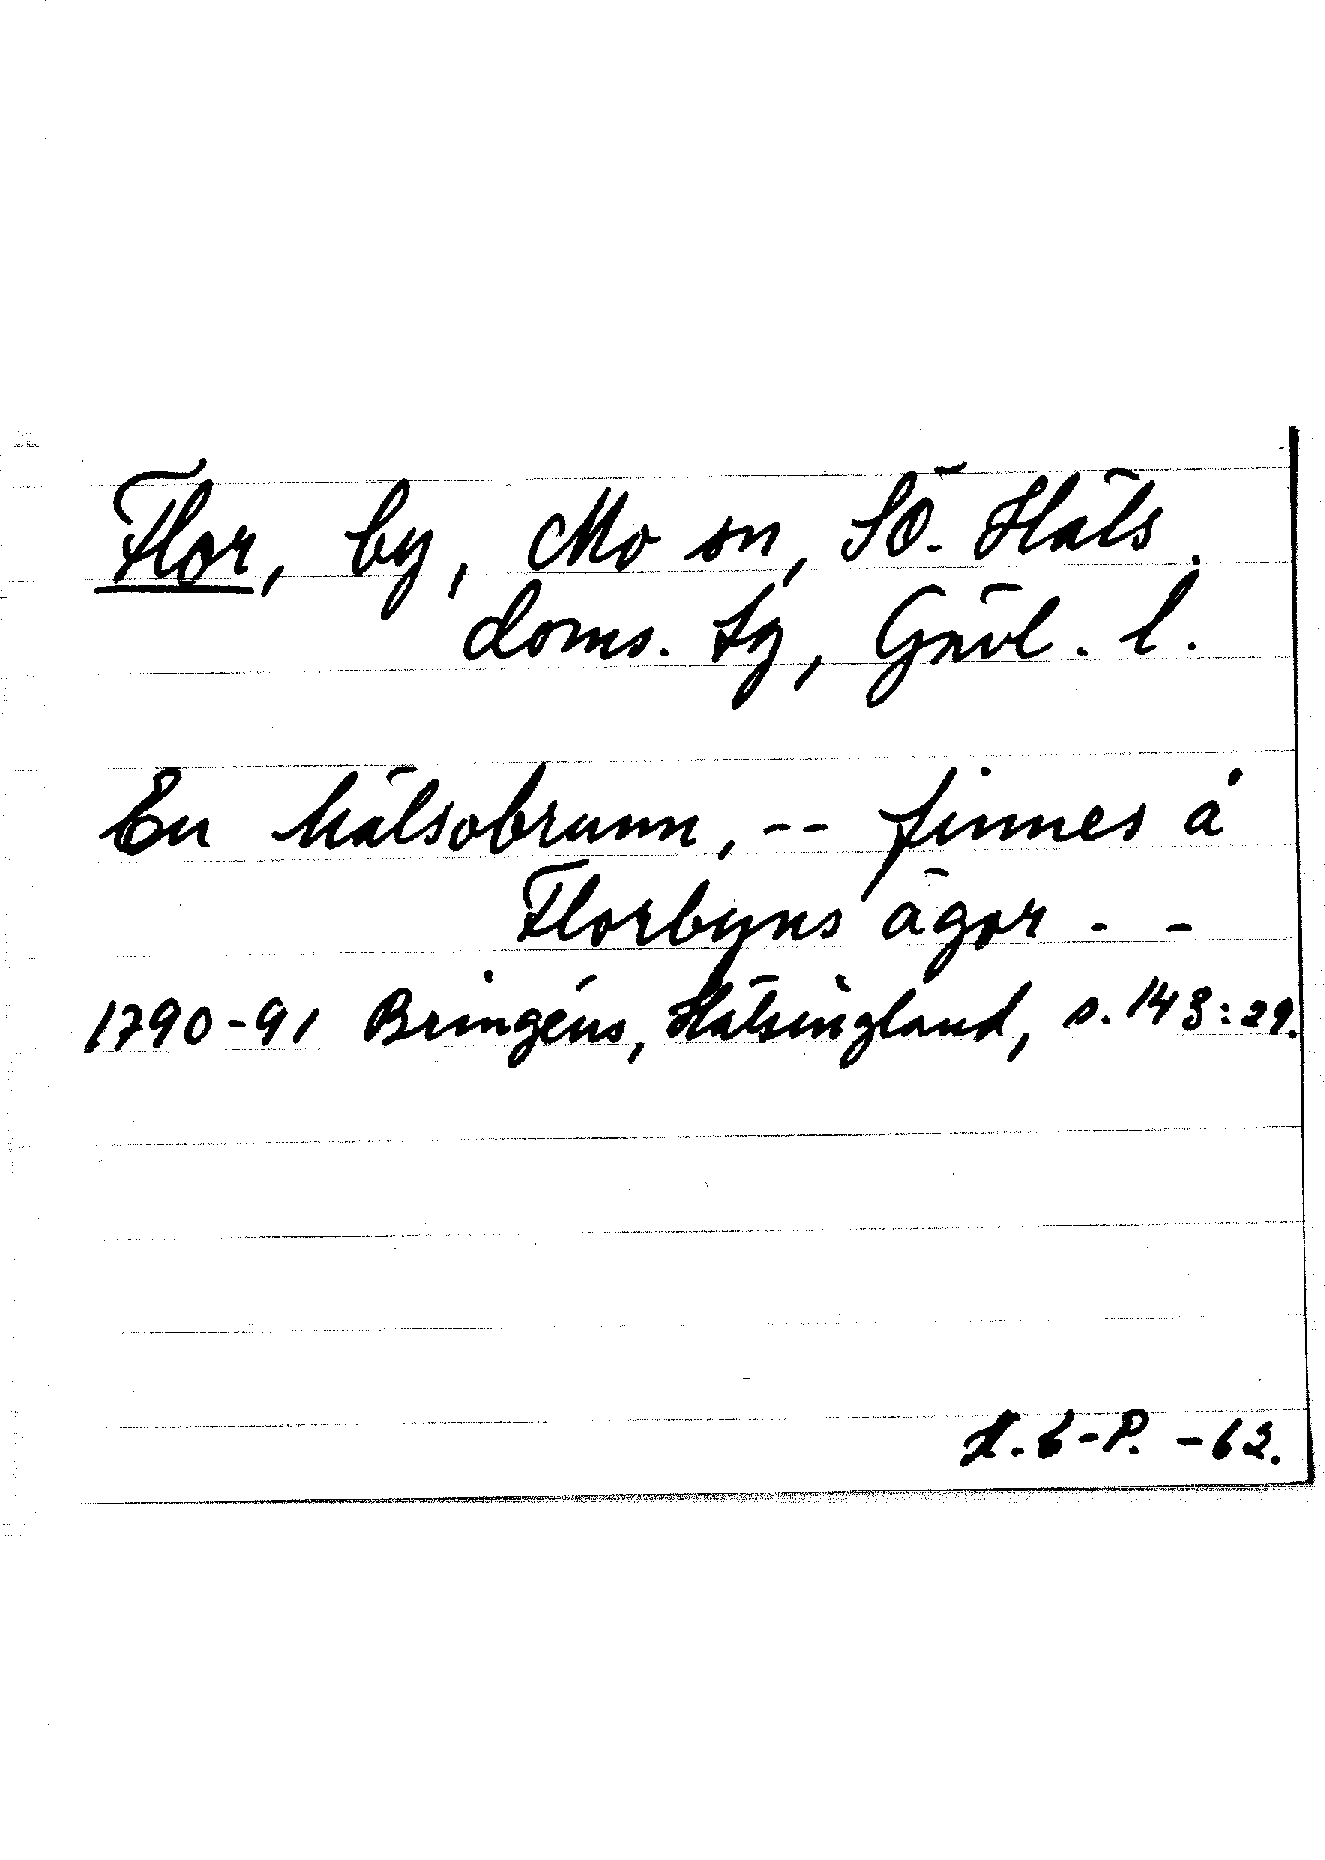 Flor, by, Mo sn, SÖ. Häls.
doms. sg, Gävl. l.
En hälsobrunn, -- finnes å
Florbyns ägor - -
1790-91 Bringéus, Hälsingland, s. 143:29.
-P. -62.